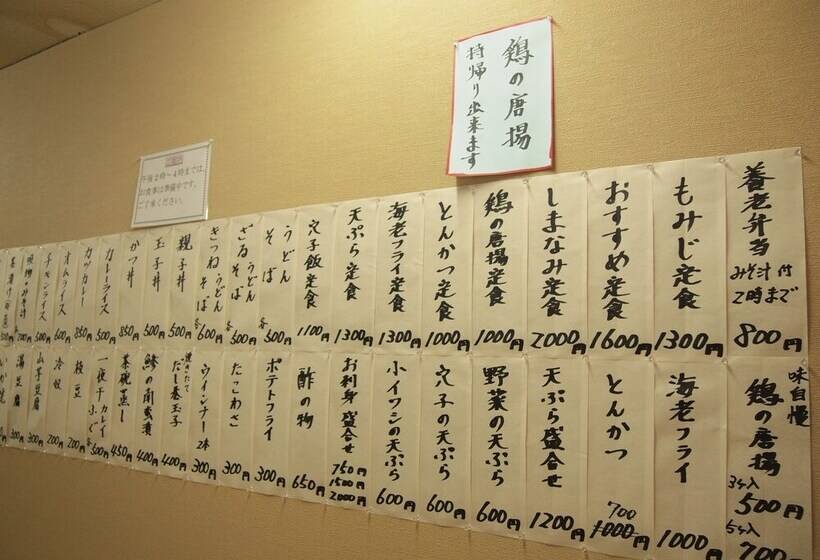 鶏の唐揚
持帰り出来ます
午後2時〜4時までは
お食事は準備中です。
ご了承ください。
養老弁当 みそ汁付 2時まで 800円
もみじ定食 1300円
おすすめ定食 1600円
しまなみ定食 2000円
鶏の唐揚定食 1000円
とんかつ定食 1000円
海老フライ定食 1300円
天ぷら定食 1300円
穴子飯定食 1100円
うどん そば 各500円
ざるうどん そば 各500円
きつねうどん そば 各600円
親子丼 500円
玉子丼 500円
かつ丼 850円
カレーライス 500円
カツカレー 850円
オムライス 600円
チキンライス 500円
味自慢 鶏の唐揚 3ケ入 500円 5ケ入 700円
海老フライ 1000円
とんかつ 700 1000円
天ぷら盛合せ 1200円
野菜の天ぷら 600円
穴子の天ぷら 600円
小イワシの天ぷら 600円
お刺身盛合せ 750円 1500円 2000円
酢の物 650円
ポテトフライ 300円
たこわさ 300円
ウインナー 2本 300円
焼きたて だし巻玉子 400円
鯵の南蛮漬 400円
茶碗蒸し 450円
一夜干 カレイ ふぐ 各500円
枝豆 200円
冷奴 200円
山芋豆腐 300円
湯豆腐 300円